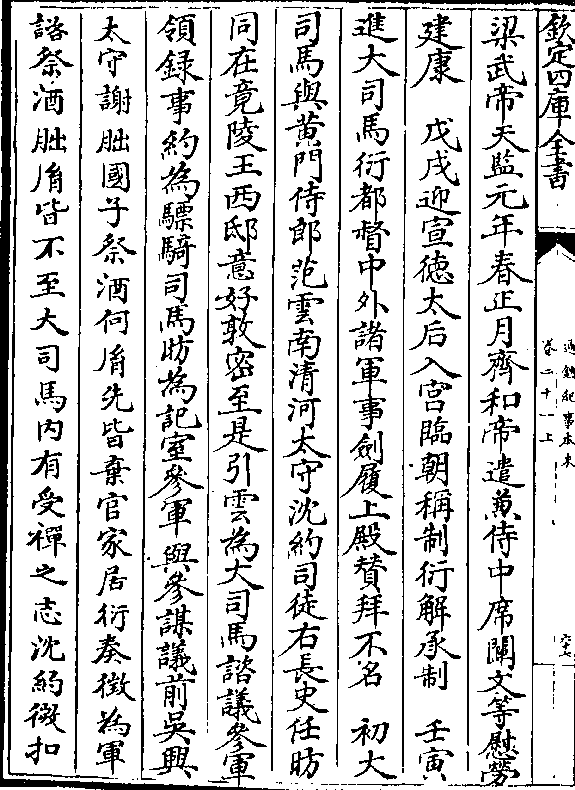 欽定四庫全書
通鑑紀事本末
卷二十一上
梁武帝天監元年春正月齊和帝遣兼侍中席闡文等慰勞
建康　戊戌迎宣德太后入宮臨朝稱制衍解承制　壬寅
進大司馬衍都督中外諸軍事劍履上殿贊拜不名　初大
司馬與黄門侍郎范雲南清河太守沈約司徒右長史任昉
同在竟陵王西邸意好敦密至是引雲為大司馬諮議參軍
領録事約為驃騎司馬昉為記室參軍與參謀議前吳興
太守謝朏國子祭酒何𦙍先皆棄官家居衍奏徵為軍
諮祭酒朏𦙍皆不至大司馬内有受禪之志沈約微扣